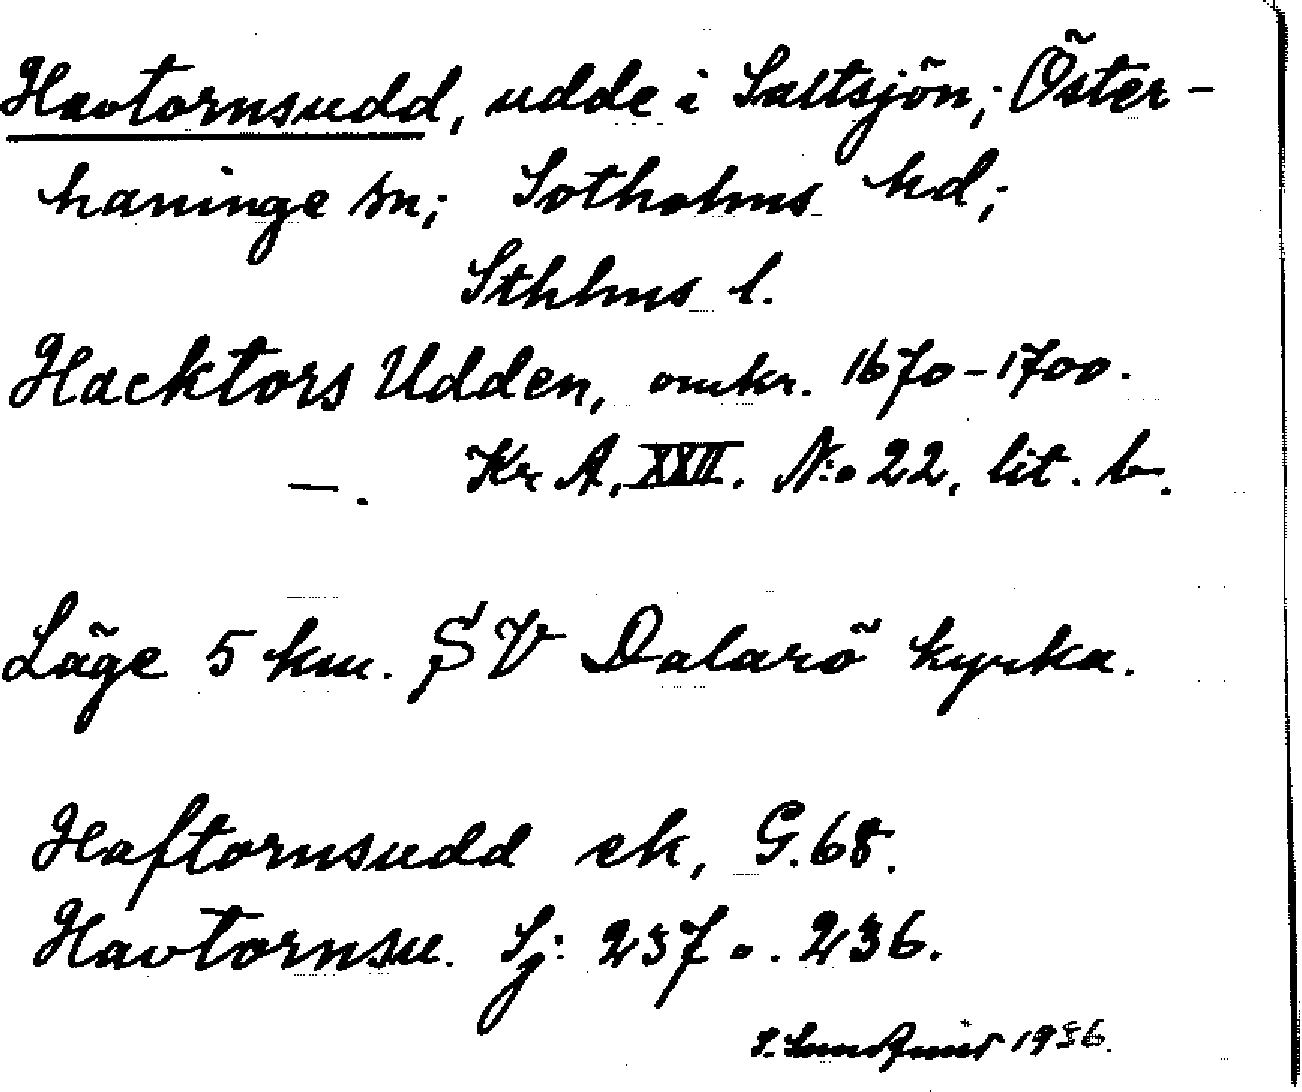 Havtornsudd, udde i Saltsjön; Öster-
haninge sn; Sotholms hd;
Sthlms l.
Hacktors Udden, omkr. 1670-1700.
—. Kr A, XXII. N:o 22, lit. b.
Läge 5 km. SV Dalarö kyrka.
Haftornsudd ek, G.68.
Havtornsu. Sj: 237 o. 236.
1936.